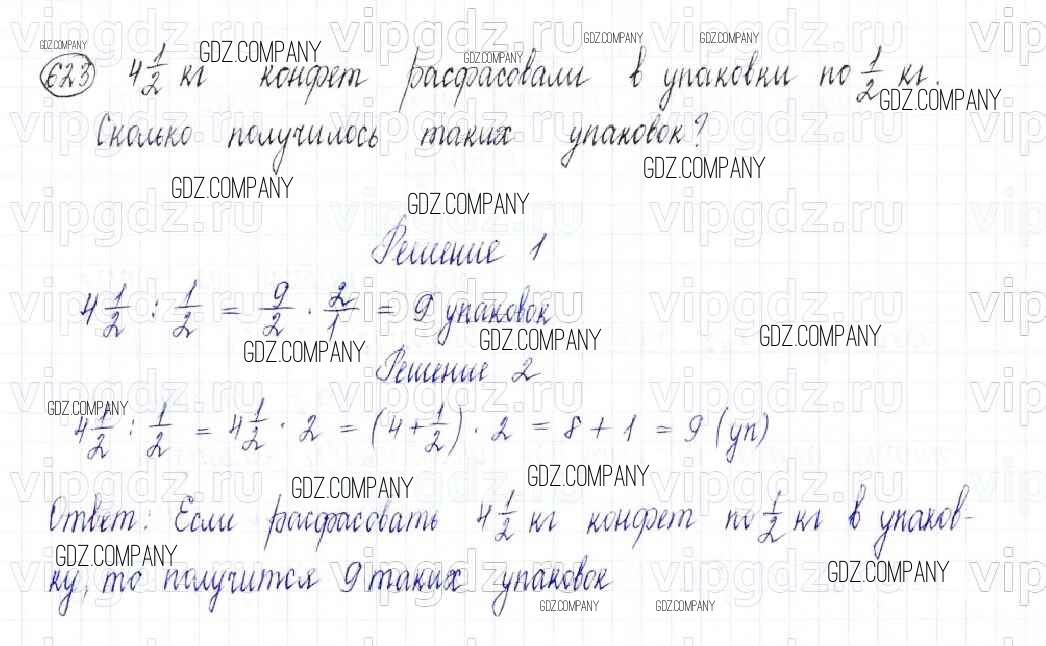 623 4 1/2 кг конфет расфасовали в упаковки по 1/2 кг.
Сколько получилось таких упаковок?
Решение 1
4 1/2 : 1/2 = 9/2 · 2/1 = 9 упаковок
Решение 2
4 1/2 : 1/2 = 4 1/2 · 2 = (4 + 1/2) · 2 = 8 + 1 = 9 (уп)
Ответ: Если расфасовать 4 1/2 кг конфет по 1/2 кг в упаков-
ку, то получится 9 таких упаковок
GDZ.COMPANY
vipgdz.ru